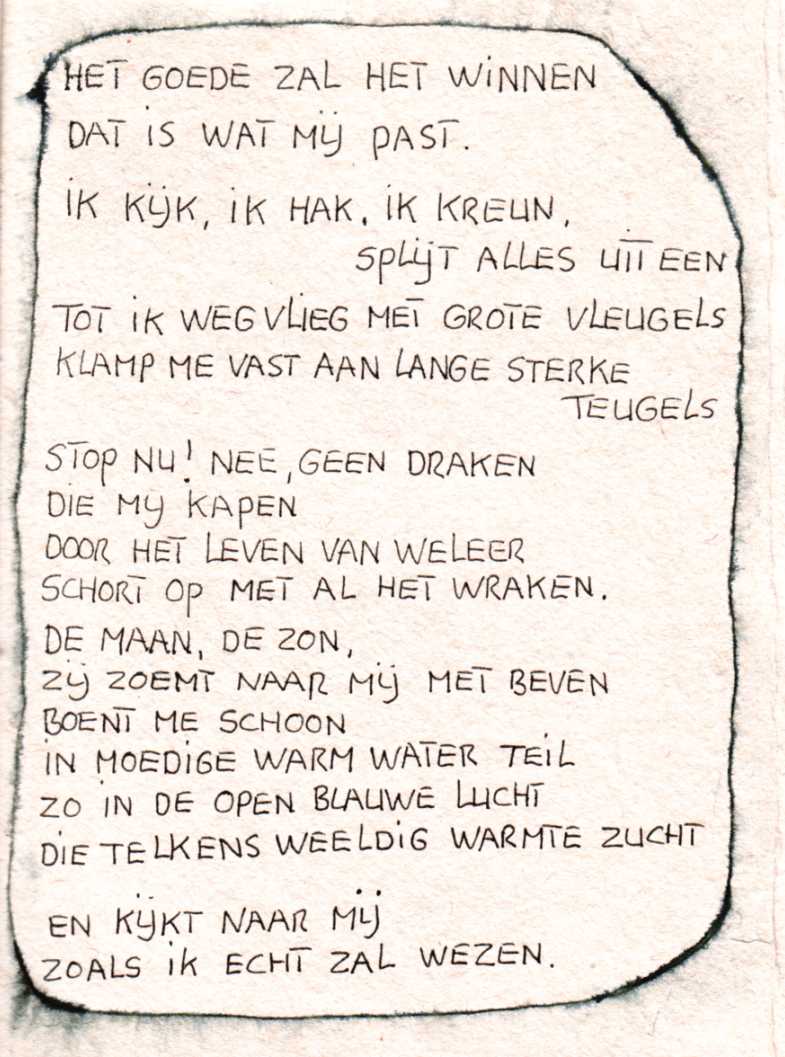 HET GOEDE ZAL HET WINNEN
DAT IS WAT MIJ PAST.
IK KIJK, IK HAK, IK KREUN,
SPLIJT ALLES UIT EEN
TOT IK WEGVLIEG MET GROTE VLEUGELS
KLAMP ME VAST AAN LANGE STERKE
TEUGELS
STOP NU! NEE, GEEN DRAKEN
DIE MIJ KAPEN
DOOR HET LEVEN VAN WELEER
SCHORT OP MET AL HET WRAKEN.
DE MAAN, DE ZON,
ZIJ ZOEMT NAAR MIJ MET BEVEN
BOENT ME SCHOON
IN MOEDIGE WARM WATER TEIL
ZO IN DE OPEN BLAUWE LUCHT
DIE TELKENS WEELDIG WARMTE ZUCHT
EN KIJKT NAAR MIJ
ZOALS IK ECHT ZAL WEZEN.